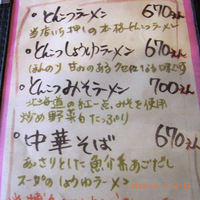 とんこつラーメン 670えん
当店いち押しの本格とんこつラーメン
とんこつしょうゆラーメン 670えん
ほんのり 甘みのある
とんこつみそラーメン 700えん
北海道の紅一点、みそを使用
炒め野菜たっぷり
中華そば 670えん
あっさりとした魚介系あごだし
スープのしょうゆラーメン